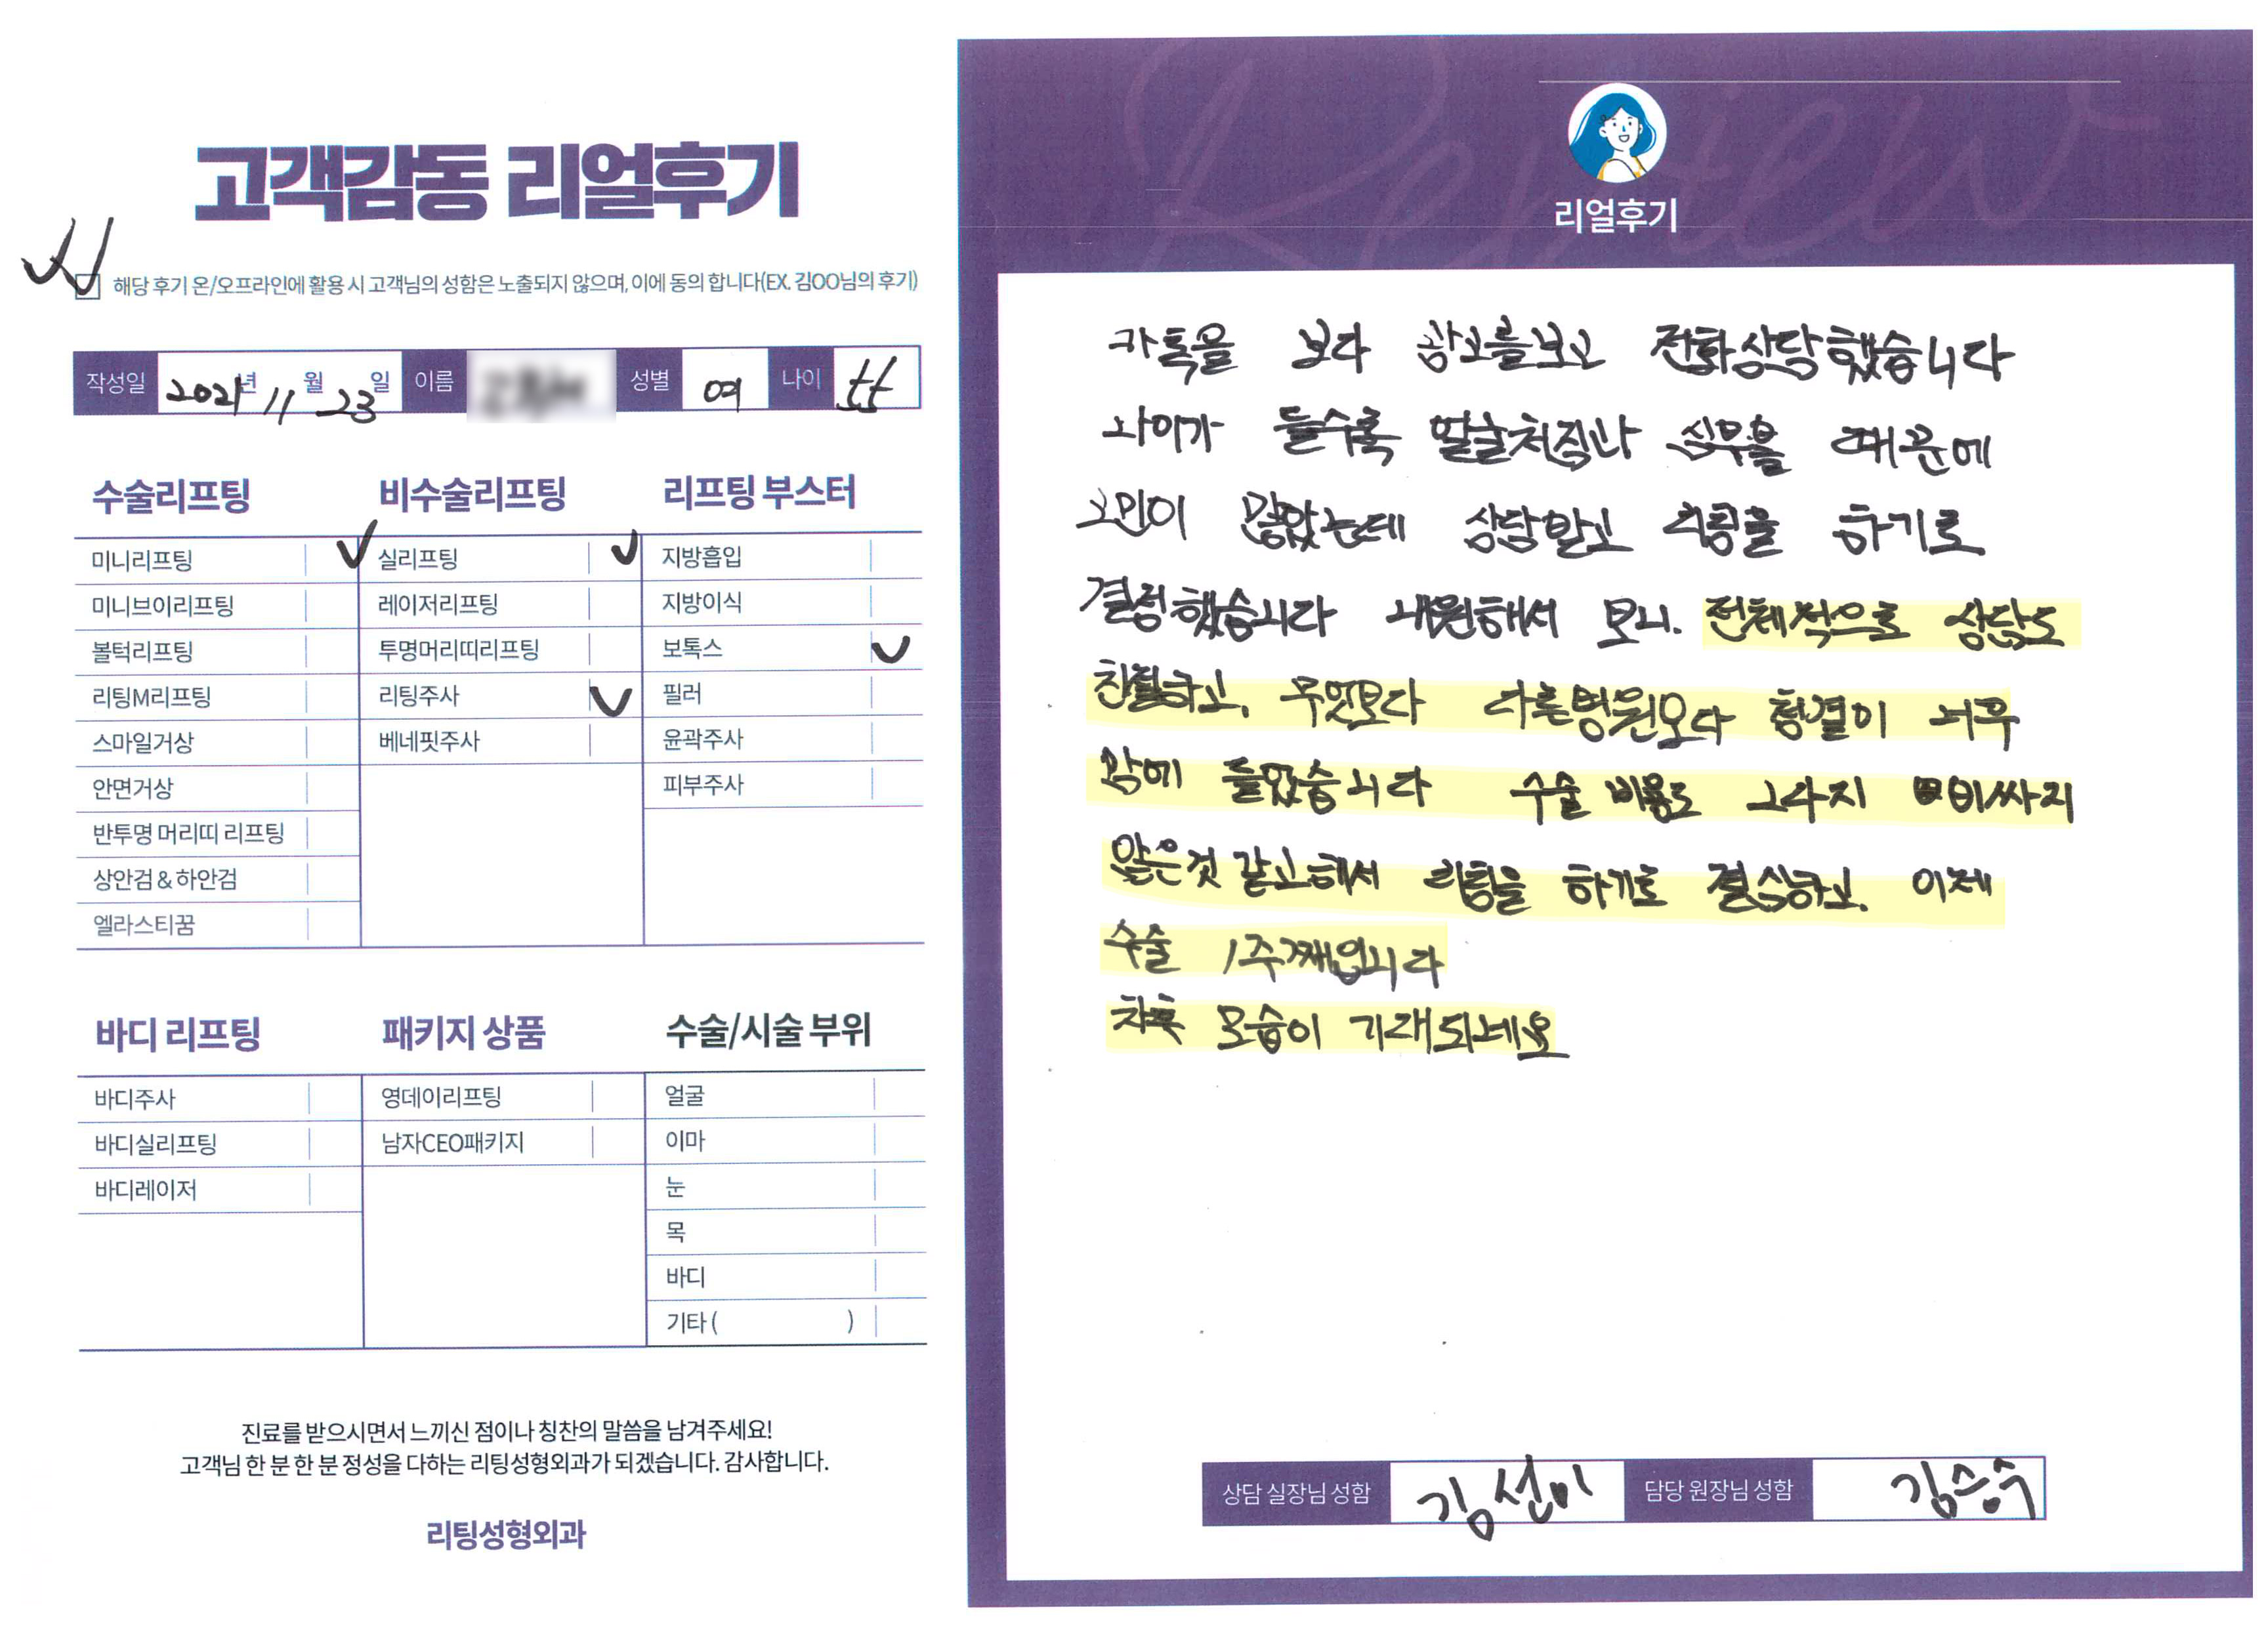 고객감동 리얼후기
해당 후기 온/오프라인에 활용 시 고객님의 성함은 노출되지 않으며, 이에 동의 합니다(EX. 김OO님의 후기)
작성일 2021년 11월 23일 이름 성별 여 나이
수술리프팅
미니리프팅
미니브이리프팅
볼턱리프팅
리팅M리프팅
스마일거상
안면거상
반투명 머리띠 리프팅
상안검 & 하안검
엘라스티꿈
비수술리프팅
실리프팅
레이저리프팅
투명머리띠리프팅
리팅주사
베네핏주사
리프팅 부스터
지방흡입
지방이식
보톡스
필러
윤곽주사
피부주사
바디 리프팅
바디주사
바디실리프팅
바디레이저
패키지 상품
영데이리프팅
남자CEO패키지
수술/시술 부위
얼굴
이마
눈
목
바디
기타 ( )
진료를 받으시면서 느끼신 점이나 칭찬의 말씀을 남겨주세요!
고객님 한 분 한 분 정성을 다하는 리팅성형외과가 되겠습니다. 감사합니다.
리팅성형외과
Review
리얼후기
카톡을 보다 광고를보고 전화상담했습니다
나이가 들수록 얼굴처짐나 때문에
고민이 많았는데 상담받고 리팅을 하기로
결정했습니다 내원해서 보니. 전체적으로 상담도
친절하고. 무엇보다 다른병원보다 청결이 너무
맘에 들었습니다 수술 비용도 그다지 비싸지
않은것 같고해서 리팅을 하기로 결심하고. 이제
수술 1주째입니다
차후 모습이 기대되네요
상담 실장님 성함 김선미 담당 원장님 성함 김승수